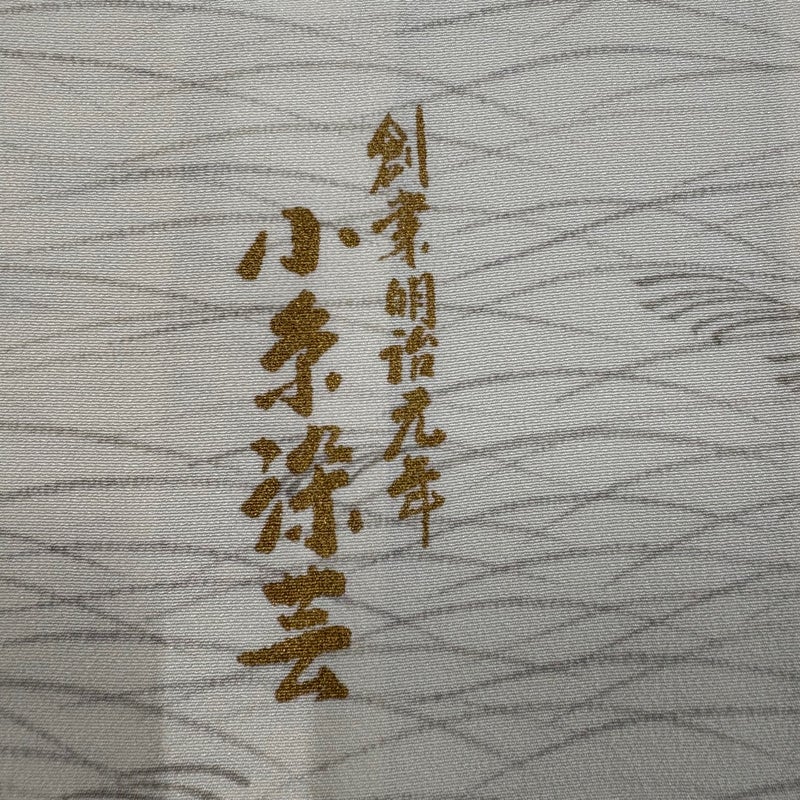 創業明治元年
小糸染芸